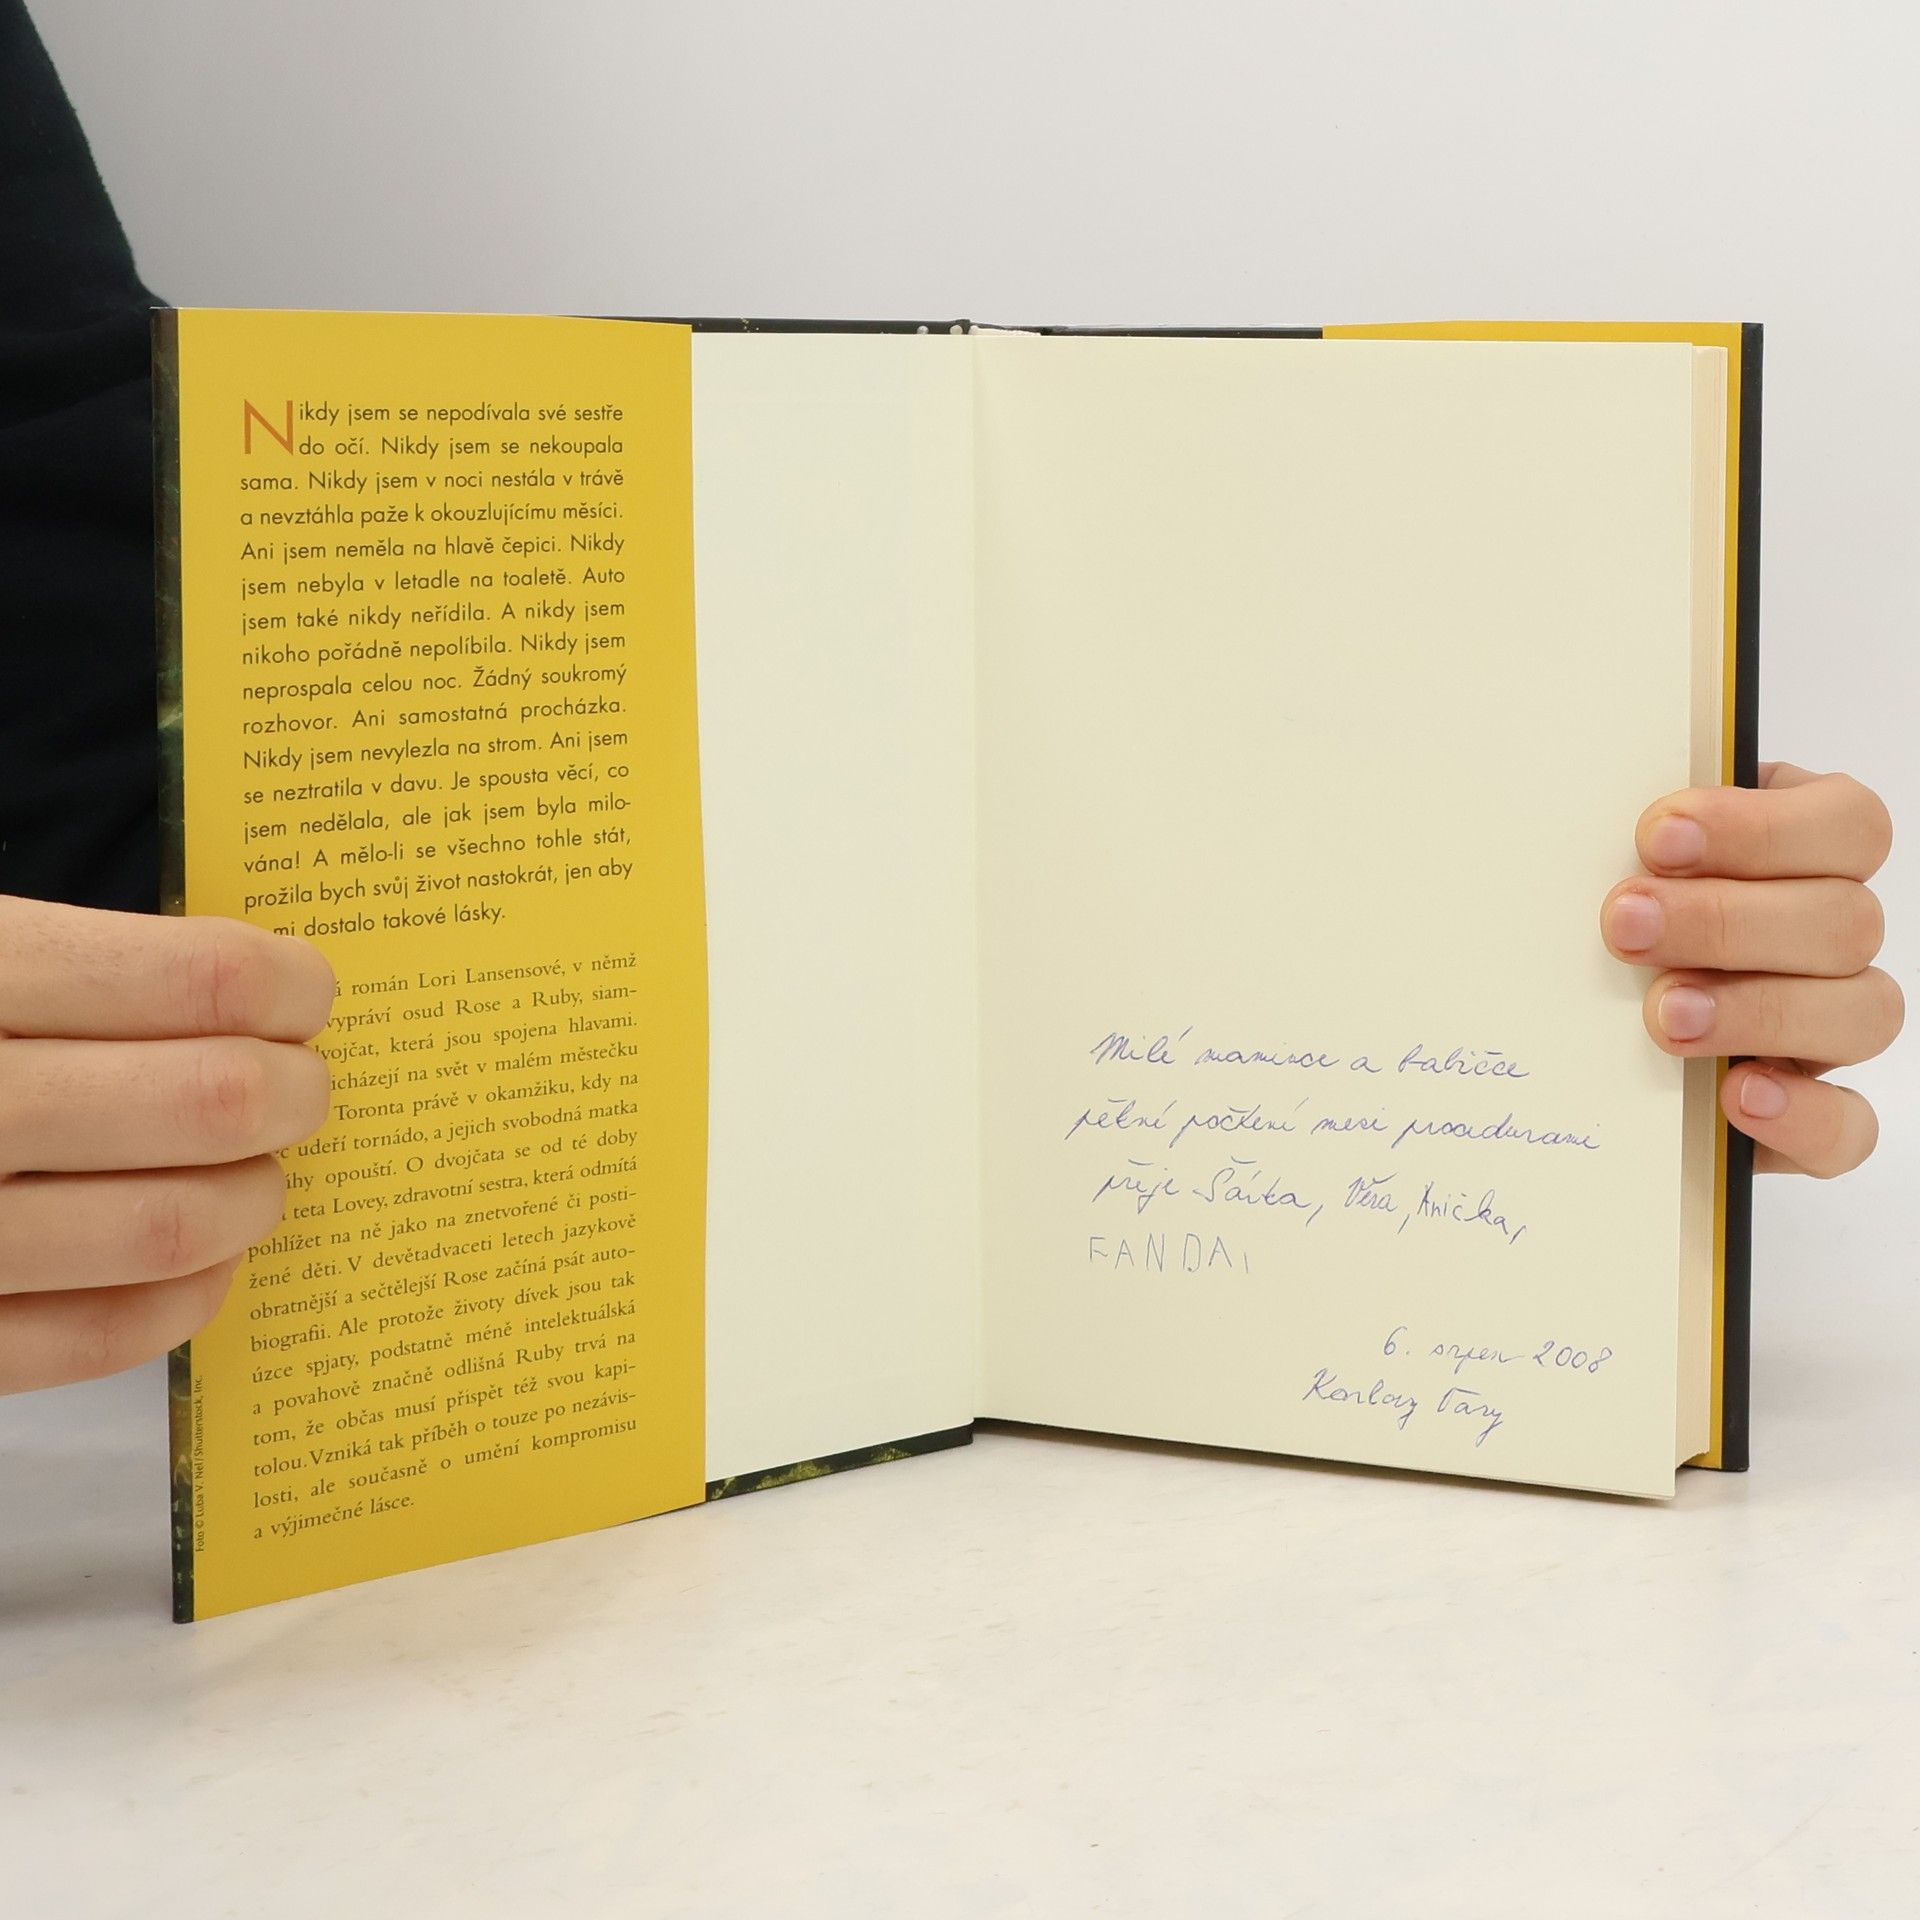 Nikdy jsem se nepodívala své sestře
do očí. Nikdy jsem se nekoupala
sama. Nikdy jsem v noci nestála v trávě
a nevztáhla paže k okouzlujícímu měsíci.
Ani jsem neměla na hlavě čepici. Nikdy
jsem nebyla v letadle na toaletě. Auto
jsem také nikdy neřídila. A nikdy jsem
nikoho pořádně nepolíbila. Nikdy jsem
neprospala celou noc. Žádný soukromý
rozhovor. Ani samostatná procházka.
Nikdy jsem nevylezla na strom. Ani jsem
se neztratila v davu. Je spousta věcí, co
jsem nedělala, ale jak jsem byla milo-
vána! A mělo-li se všechno tohle stát,
prožila bych svůj život nastokrát, jen aby
mi dostalo takové lásky.
román Lori Lansensové, v němž
vypráví osud Rose a Ruby, siam-
dvojčat, která jsou spojena hlavami.
na svět v malém městečku
Toronta právě v okamžiku, kdy na
udeří tornádo, a jejich svobodná matka
opouští. O dvojčata se od té doby
teta Lovey, zdravotní sestra, která odmítá
pohlížet na ně jako na znetvořené či posti-
žené děti. V devětadvaceti letech jazykově
obratnější a sečtělejší Rose začíná psát auto-
biografii. Ale protože životy dívek jsou tak
úzce spjaty, podstatně méně intelektuálská
a povahově značně odlišná Ruby trvá na
tom, že občas musí přispět též svou kapi-
tolou. Vzniká tak příběh o touze po nezávis-
losti, ale současně o umění kompromisu
a výjimečné lásce.
Foto © Luba V. Nel/Shutterstock, Inc.
Milé mamince a babičce
pěkné počtení mezi procedurami
přeje Šárka, Věra, Anička,
FANDA,
6. srpen 2008
Karlovy Vary